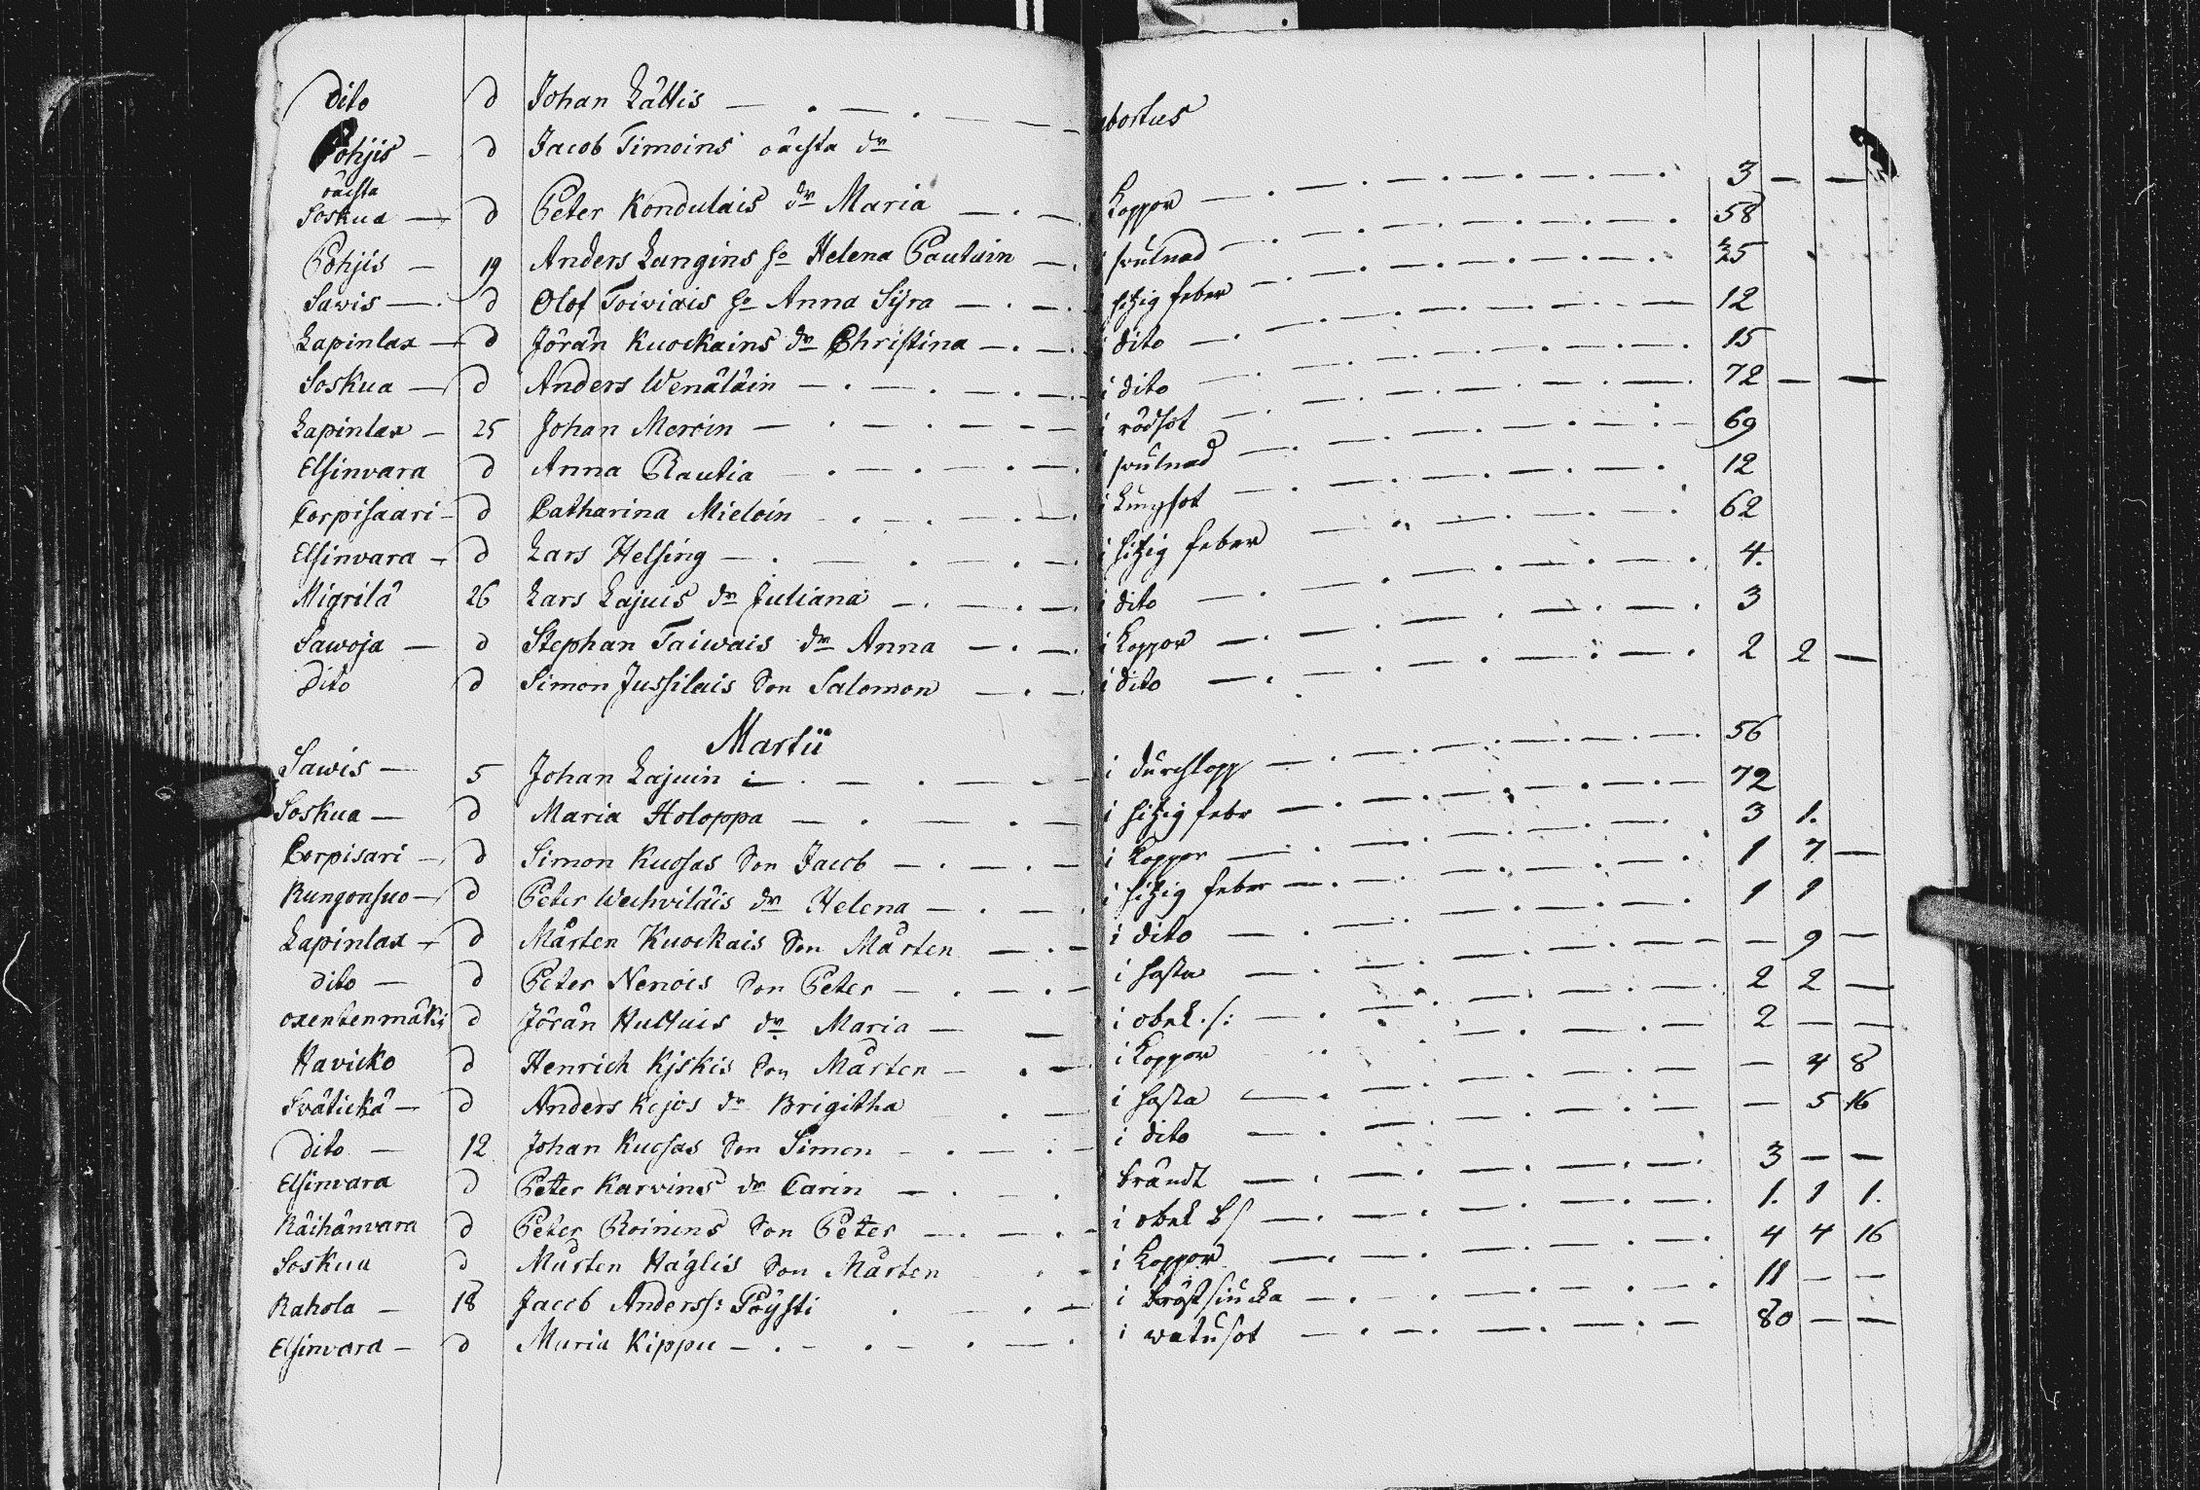 Dito d Johan Lättis — . — . — abortus
Pohjis — d Jacob Timoins oächta dr
oächta
Soskua — d Peter Kondulais dr Maria — . — Koppor — 3 — —
Pohjis — 19 Anders Langins ho Helena Pautuin — i svulnad — 58
Savis — d Olof Toiviais ho Anna Sijra — . — i hitzig feber — 35
Lapinlax — d Jöran Kuockains dr Christina — . — i dito — 12
Soskua — d Anders Wenäläin — . — . — i dito — 15
Lapinlax — 25 Johan Meroin — . — . — i rödsot — 72 — —
Elsinvara d Anna Rautia — . — . — i svulnad — 69
Corpisaari — d Catharina Mieloin — . — . — i Lungsot — 12
Elsinvara — d Lars Helsing — . — . — i hitzig feber — 62
Migrilä 26 Lars Lajuis dr Juliana — . — i dito — 4.
Sawoja — d Stephan Taiwais dr Anna — . — i Koppor — 3
Dito d Simon Jussilais Son Salomon — . — i dito — 2 2 —
Martii
Sawis — 5 Johan Lajuin — . — . — i Durchlopp — 56
Soskua — d Maria Holoppa — . — . — i hitzig febr — 72
Corpisari — d Simon Kuosas Son Jacob — . — i Koppor — 3 1.
Kungonsuo — d Peter Wechviläis dr Helena — . — i hitzig feber — 1 7 —
Lapinlax — d Mårten Kuockais Son Mårten — . — i dito — 1 1
dito — d Peter Nenois Son Peter — . — . — i hosta — — 9 —
oxentenmäki d Jöran Huttuis dr Maria — — i obek. s: — 2 2 —
Havicko d Henrich Kjskis Son Mårten — . — i Koppor 2 — —
Svätickä — d Anders Kejos dr Brigitha — . — i hosta — — 4 8
dito — 12 Johan Kuosas Son Simon — . — . i dito — — 5 16
Elsinvara d Peter Karvins dr Carin — . — . brändt — 3 — —
Räihänvara d Peter Roinins Son Peter — . — . i obek s — 1. 1 1.
Soskua d Mårten Häglis Son Mårten . — i Koppor — 4 4 16
Rahola — 18 Jacob Anderss: Pöysti . — . — i bröstsiucka — 11 — —
Elsinvara — d Maria Kippu — . — . — . — i watusot — 80 — —